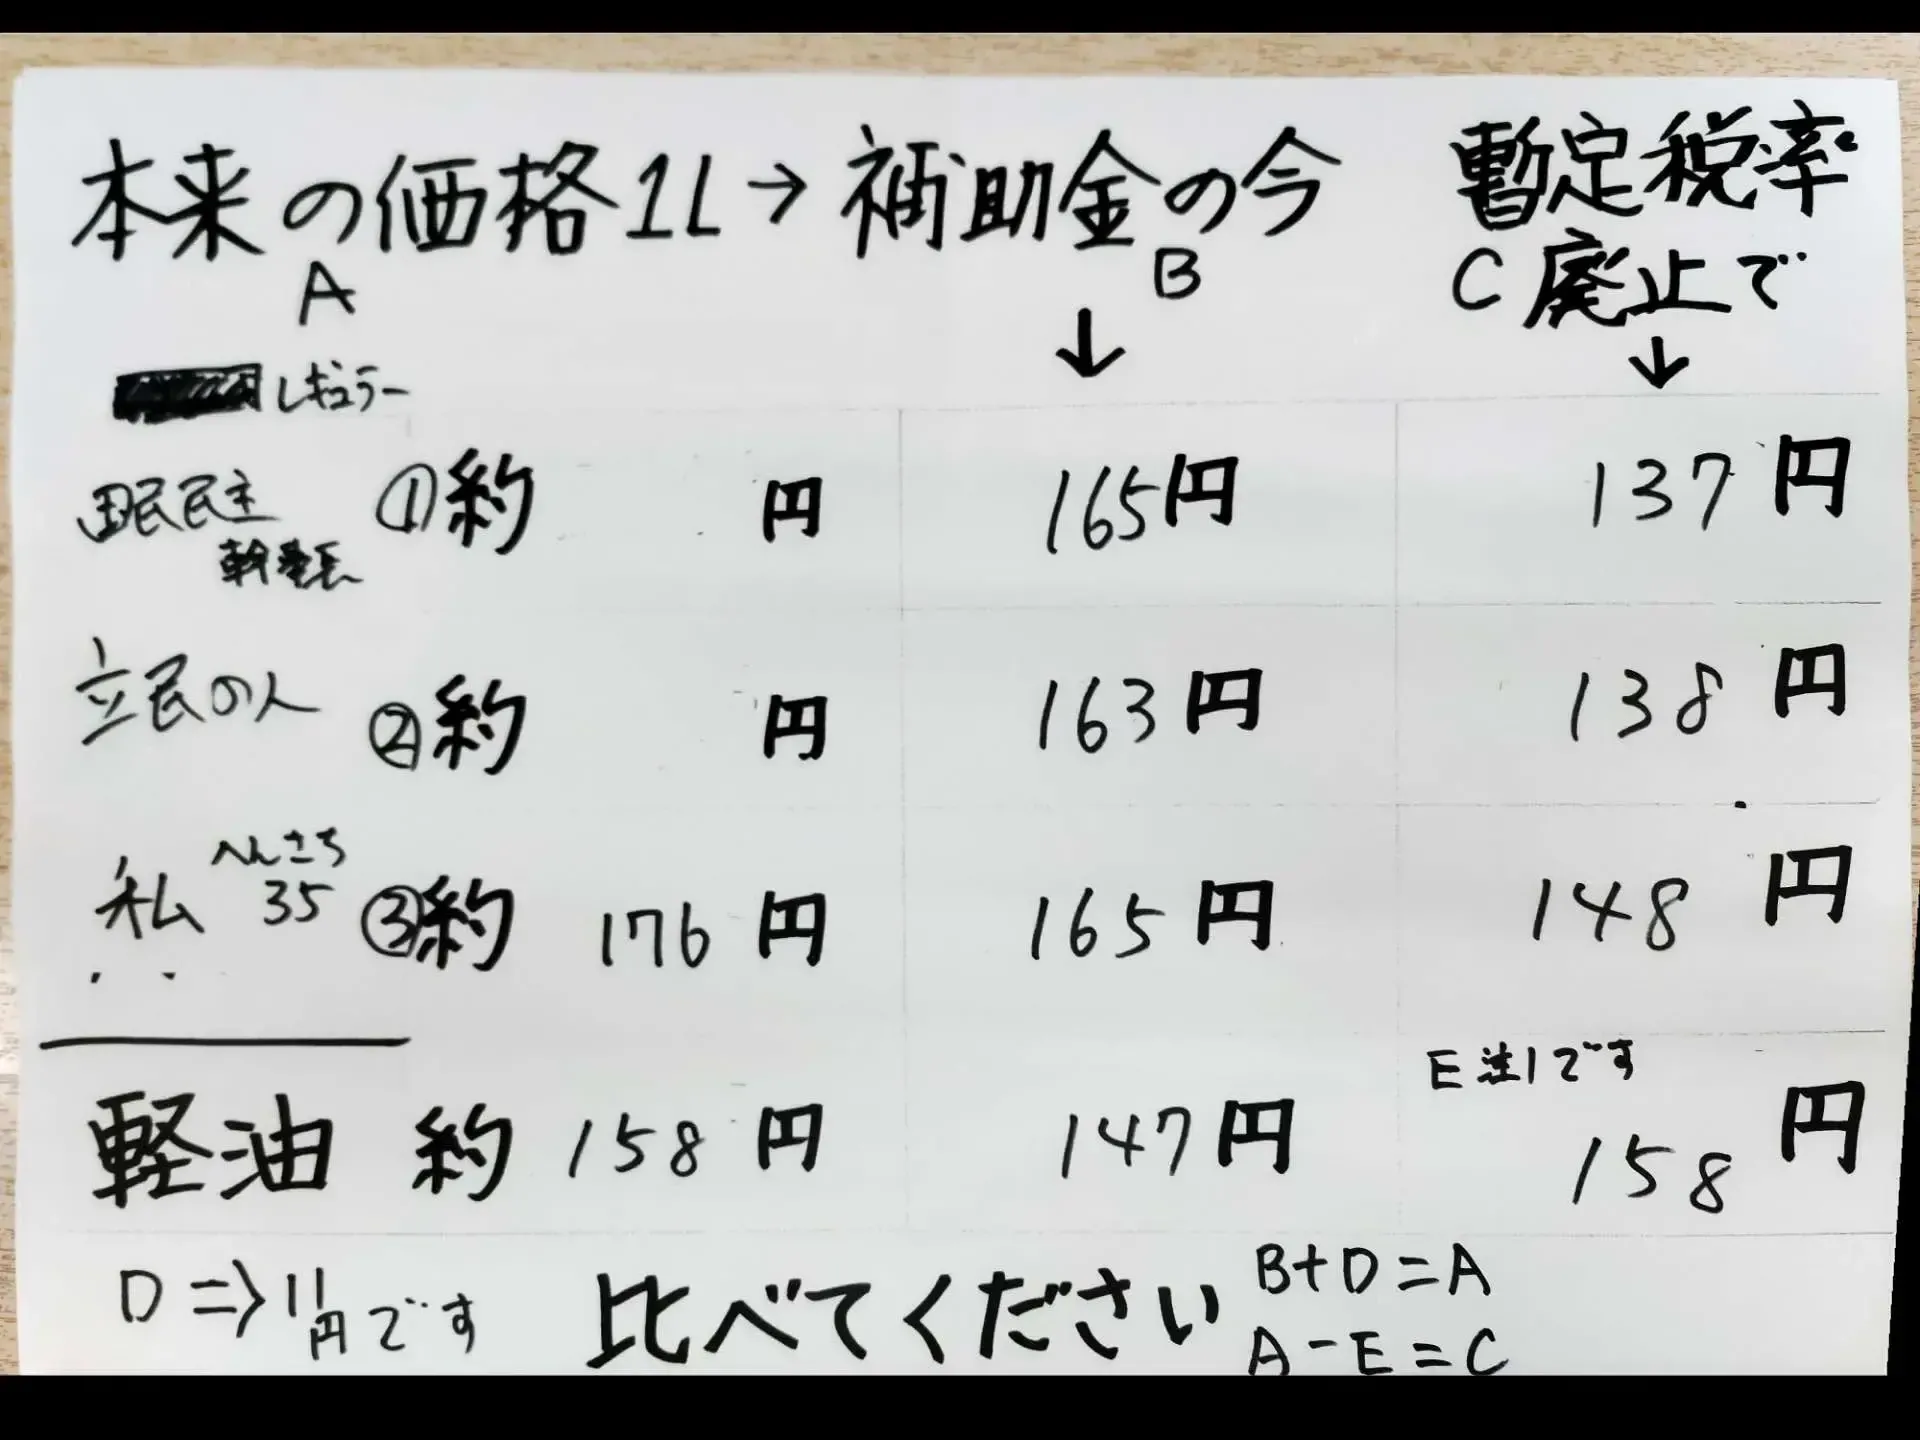 本来の価格1L→補助金の今
A
B
↓
暫定税率
C 廃止で
↓
レギュラー
国民民主
幹事長
①約 円 165円 137円
立民の人 ②約 円 163円 138円
私 へんさち
35
③約 176円 165円 148円
E 注1です
軽油 約 158円 147円 158円
D => 11円です
比べてください
B+D=A
A-E=C